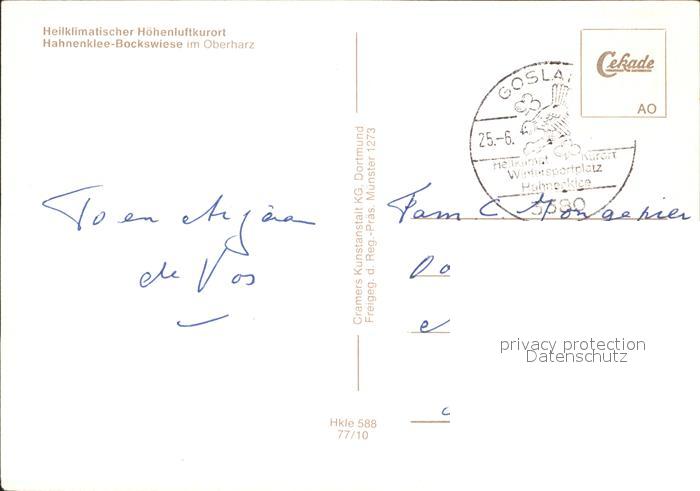 Heilklimatischer Höhenluftkurort
Hahnenklee-Bockswiese im Oberharz
Cekade
AO
GOSLA
25.-6.
Heilklimat. Kurort
Wintersportplatz
Hahnenklee
3380
Cramers Kunstanstalt KG. Dortmund
Freigeg. d. Reg.-Präs. Münster 1273
To en
de Vos
Fam C.
Do
e
privacy protection
Datenschutz
c
Hkle 588
77/10